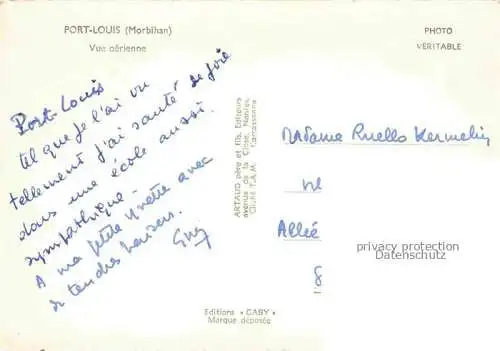 PORT-LOUIS (Morbihan)
Vue aérienne
PHOTO
VERITABLE
Port-Louis
tel que je l'ai vu
tellement j'ai sauté de joie
dans une école aussi
sympathique -
A ma petite Yvette avec
de tendres baisers.
Guy
ARTAUD père et fils, Editeurs
avenue de la Close, Nantes.
Cliché T.A.M. Carcassonne
Madame Ruello Kermelin
Allée
privacy protection
Datenschutz
8
Editions « GABY »
Marque déposée